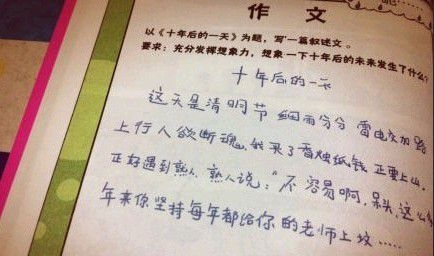 作 文
以《十年后的一天》为题，写一篇叙述文。
要求：充分发挥想象力，想象一下十年后的未来发生了什么？
十年后的一天
这天是清明节 细雨分分 雷电交加 路
上行人欲断魂。我买了香烛纸钱 正要上山。
正好遇到熟人，熟人说："不容易啊，呆头，这么多
年来你坚持每年都给你的老师上坟……